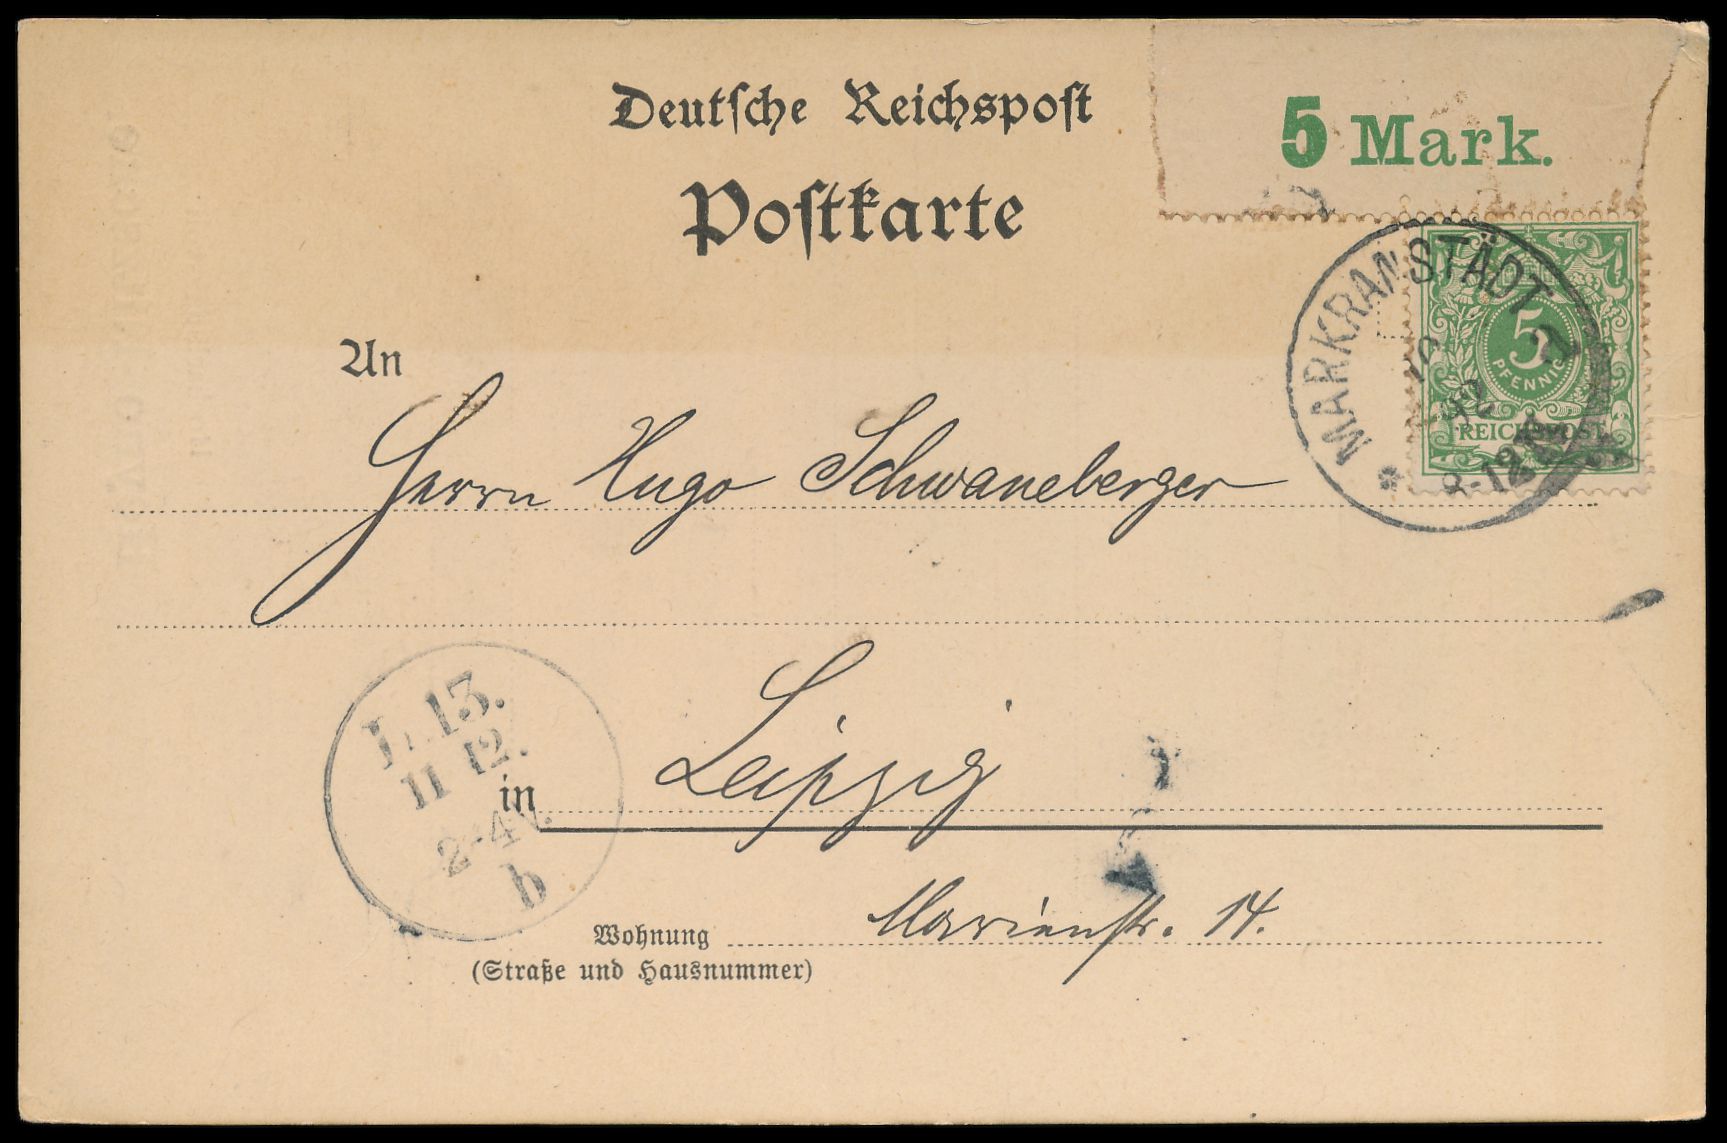 Deutsche Reichspost
5 Mark.
Postkarte
MARKRANSTÄDT
5
PFENNIG
REICHSPOST
92
8-12
An
Herrn Hugo Schwaneberger
L. 13.
11 12.
2-4V.
b
in Leipzig
Wohnung Marienstr. 14.
(Straße und Hausnummer)